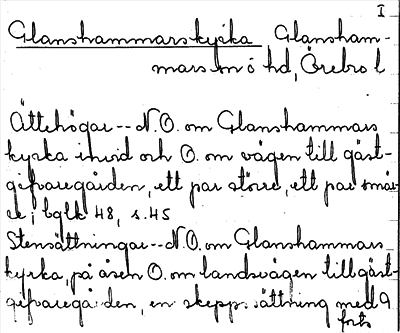 I
Glanshammarskyrka Glansham-
mars sn o hd, Örebro l
Ättehögar -- N.O. om Glanshammars
kyrka invid och O. om vägen till gäst-
gifvaregården, ett par större, ett par smär-
re; bglk 48, s. 45
Stensättningar -- N.O. om Glanshammars
kyrka, på åsen O. om landsvägen till gäst-
gifvaregården, en skeppsättning med 9
forts